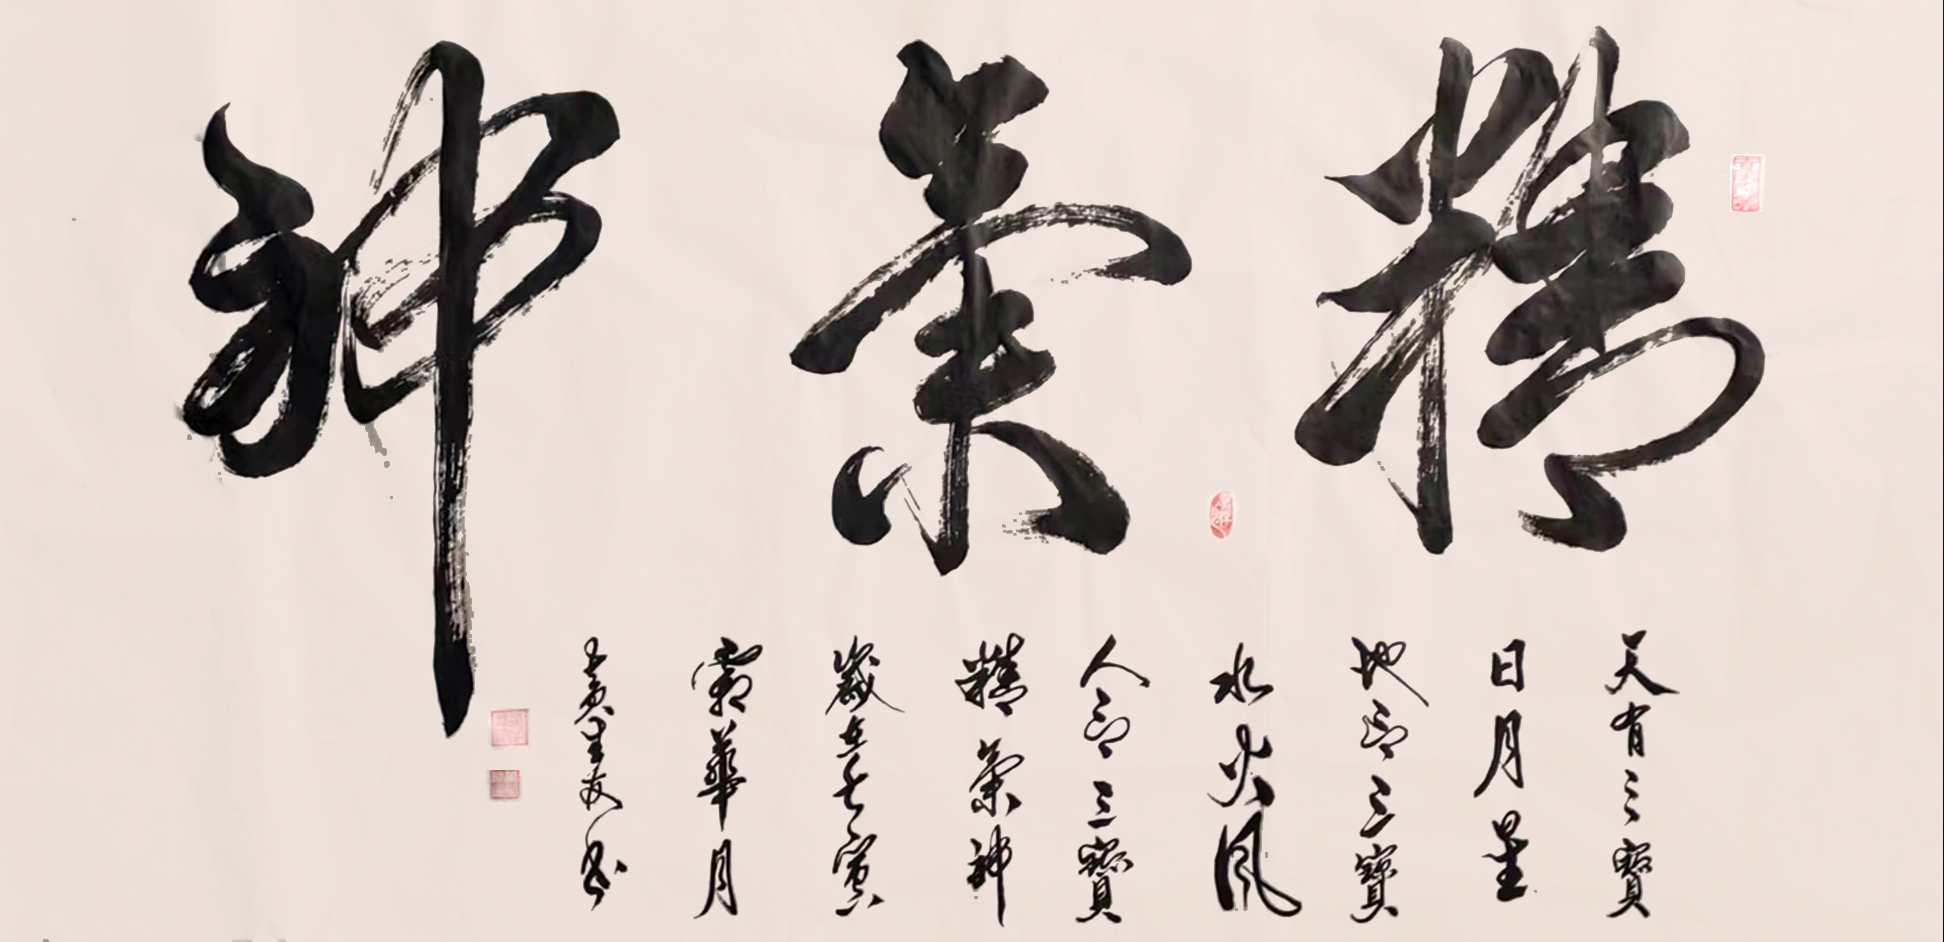 精氣神
天有三寶
日月星
地有三寶
水火風
人有三寶
精氣神
歲在壬寅
霜華月